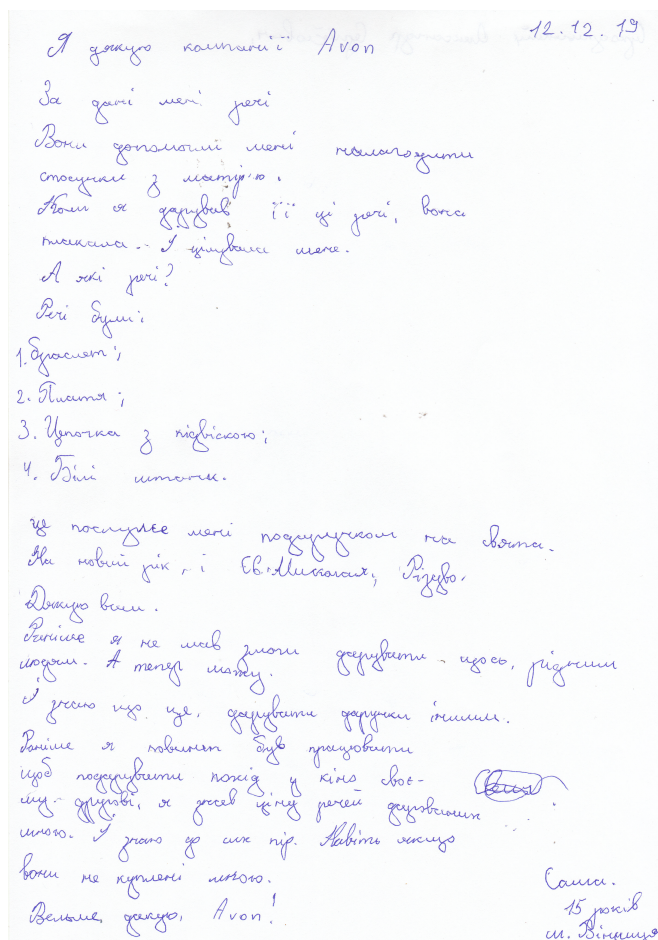 12.12.19
Я дякую компанії Avon
За дані мені речі
Вони допомогли мені налагодити
стосунки з матір'ю.
Коли я дарував її ці речі, вона
плакала. І цілувала мене.
А які речі?
Речі були:
1. Браслет;
2. Плаття;
3. Цепочка з підвіскою;
4. Білі штани.
Це послужє мені подарунком на свята.
На новий рік, і Св. Миколая, Різдво.
Дякую вам.
Раніше я не мав змоги дарувати щось, рідним
людям. А тепер можу.
І знаю що це, дарувати даручки іншим.
Раніше я повинен був працювати
щоб подарувати похід у кіно своє-
му другові, я знаю ціну речей дарованих
мною. І знаю до сих пір. Навіть якщо
вони не куплені мною.
Вельме дякую, Avon!
Саша.
15 років
м. Вінниця